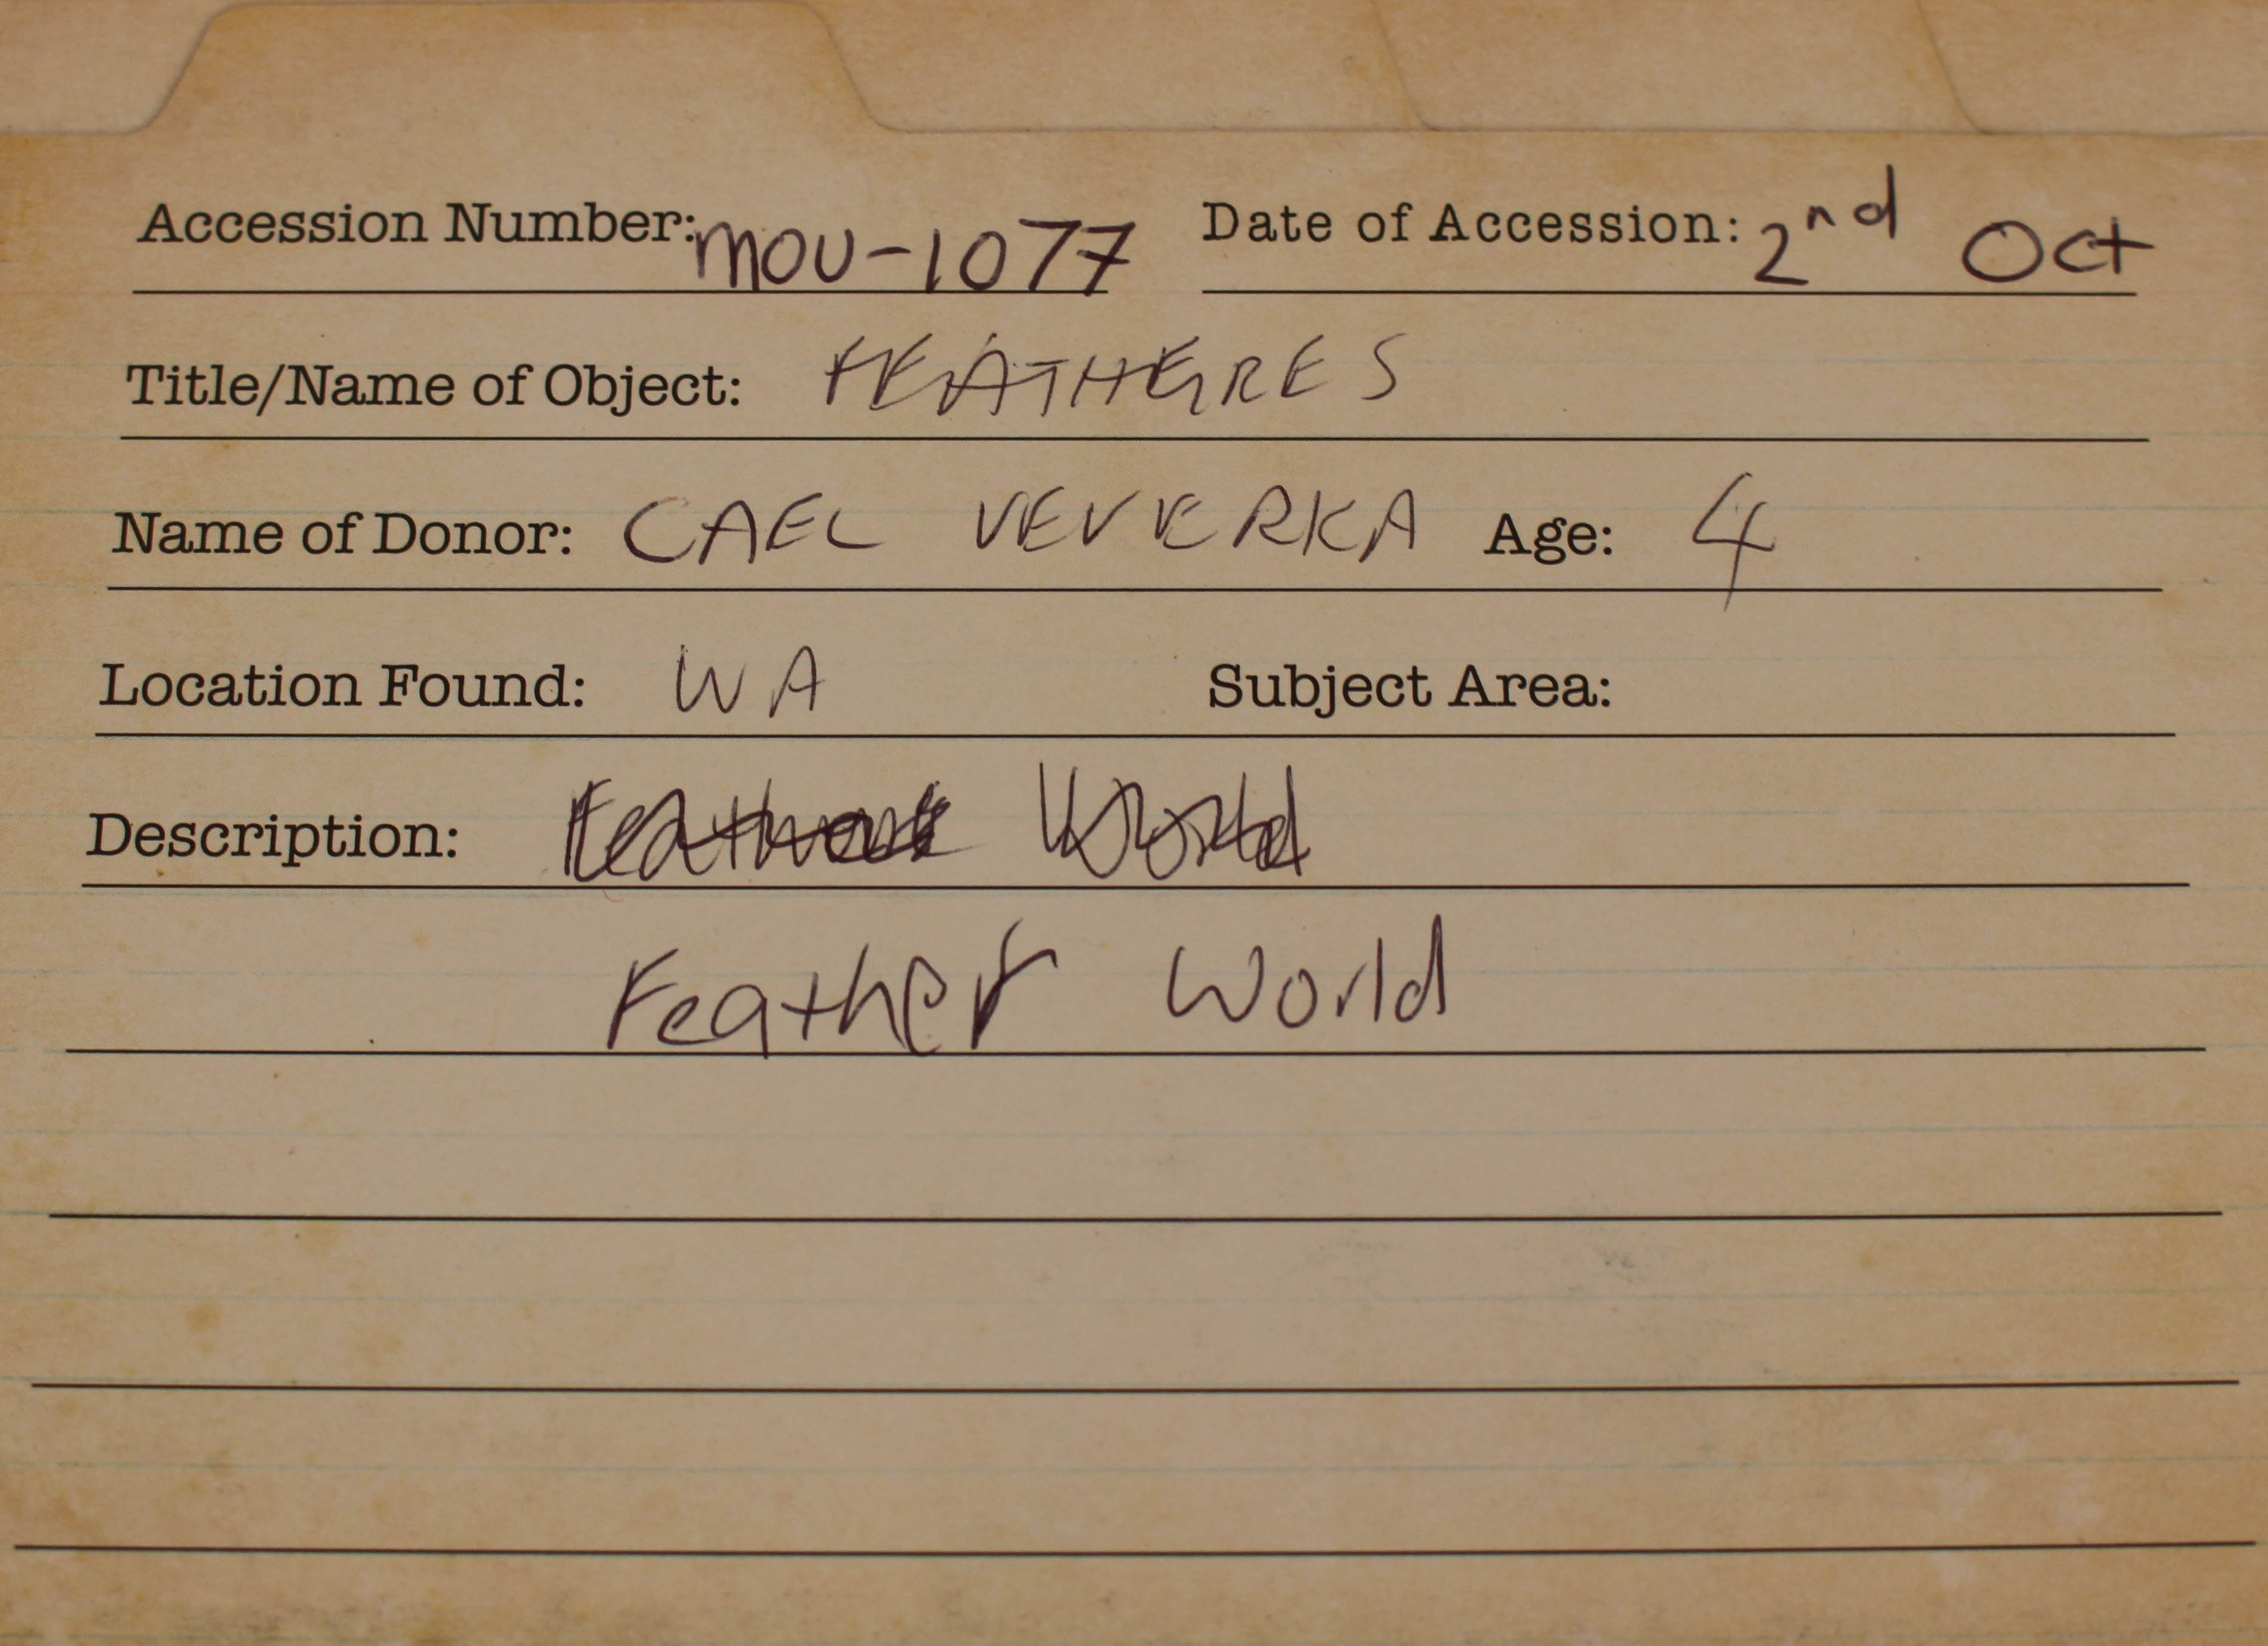 Accession Number: MOU-1077 Date of Accession: 2nd Oct
Title/Name of Object: FEATHERES
Name of Donor: CAEL VEVERKA Age: 4
Location Found: WA Subject Area:
Description: World
Feather World